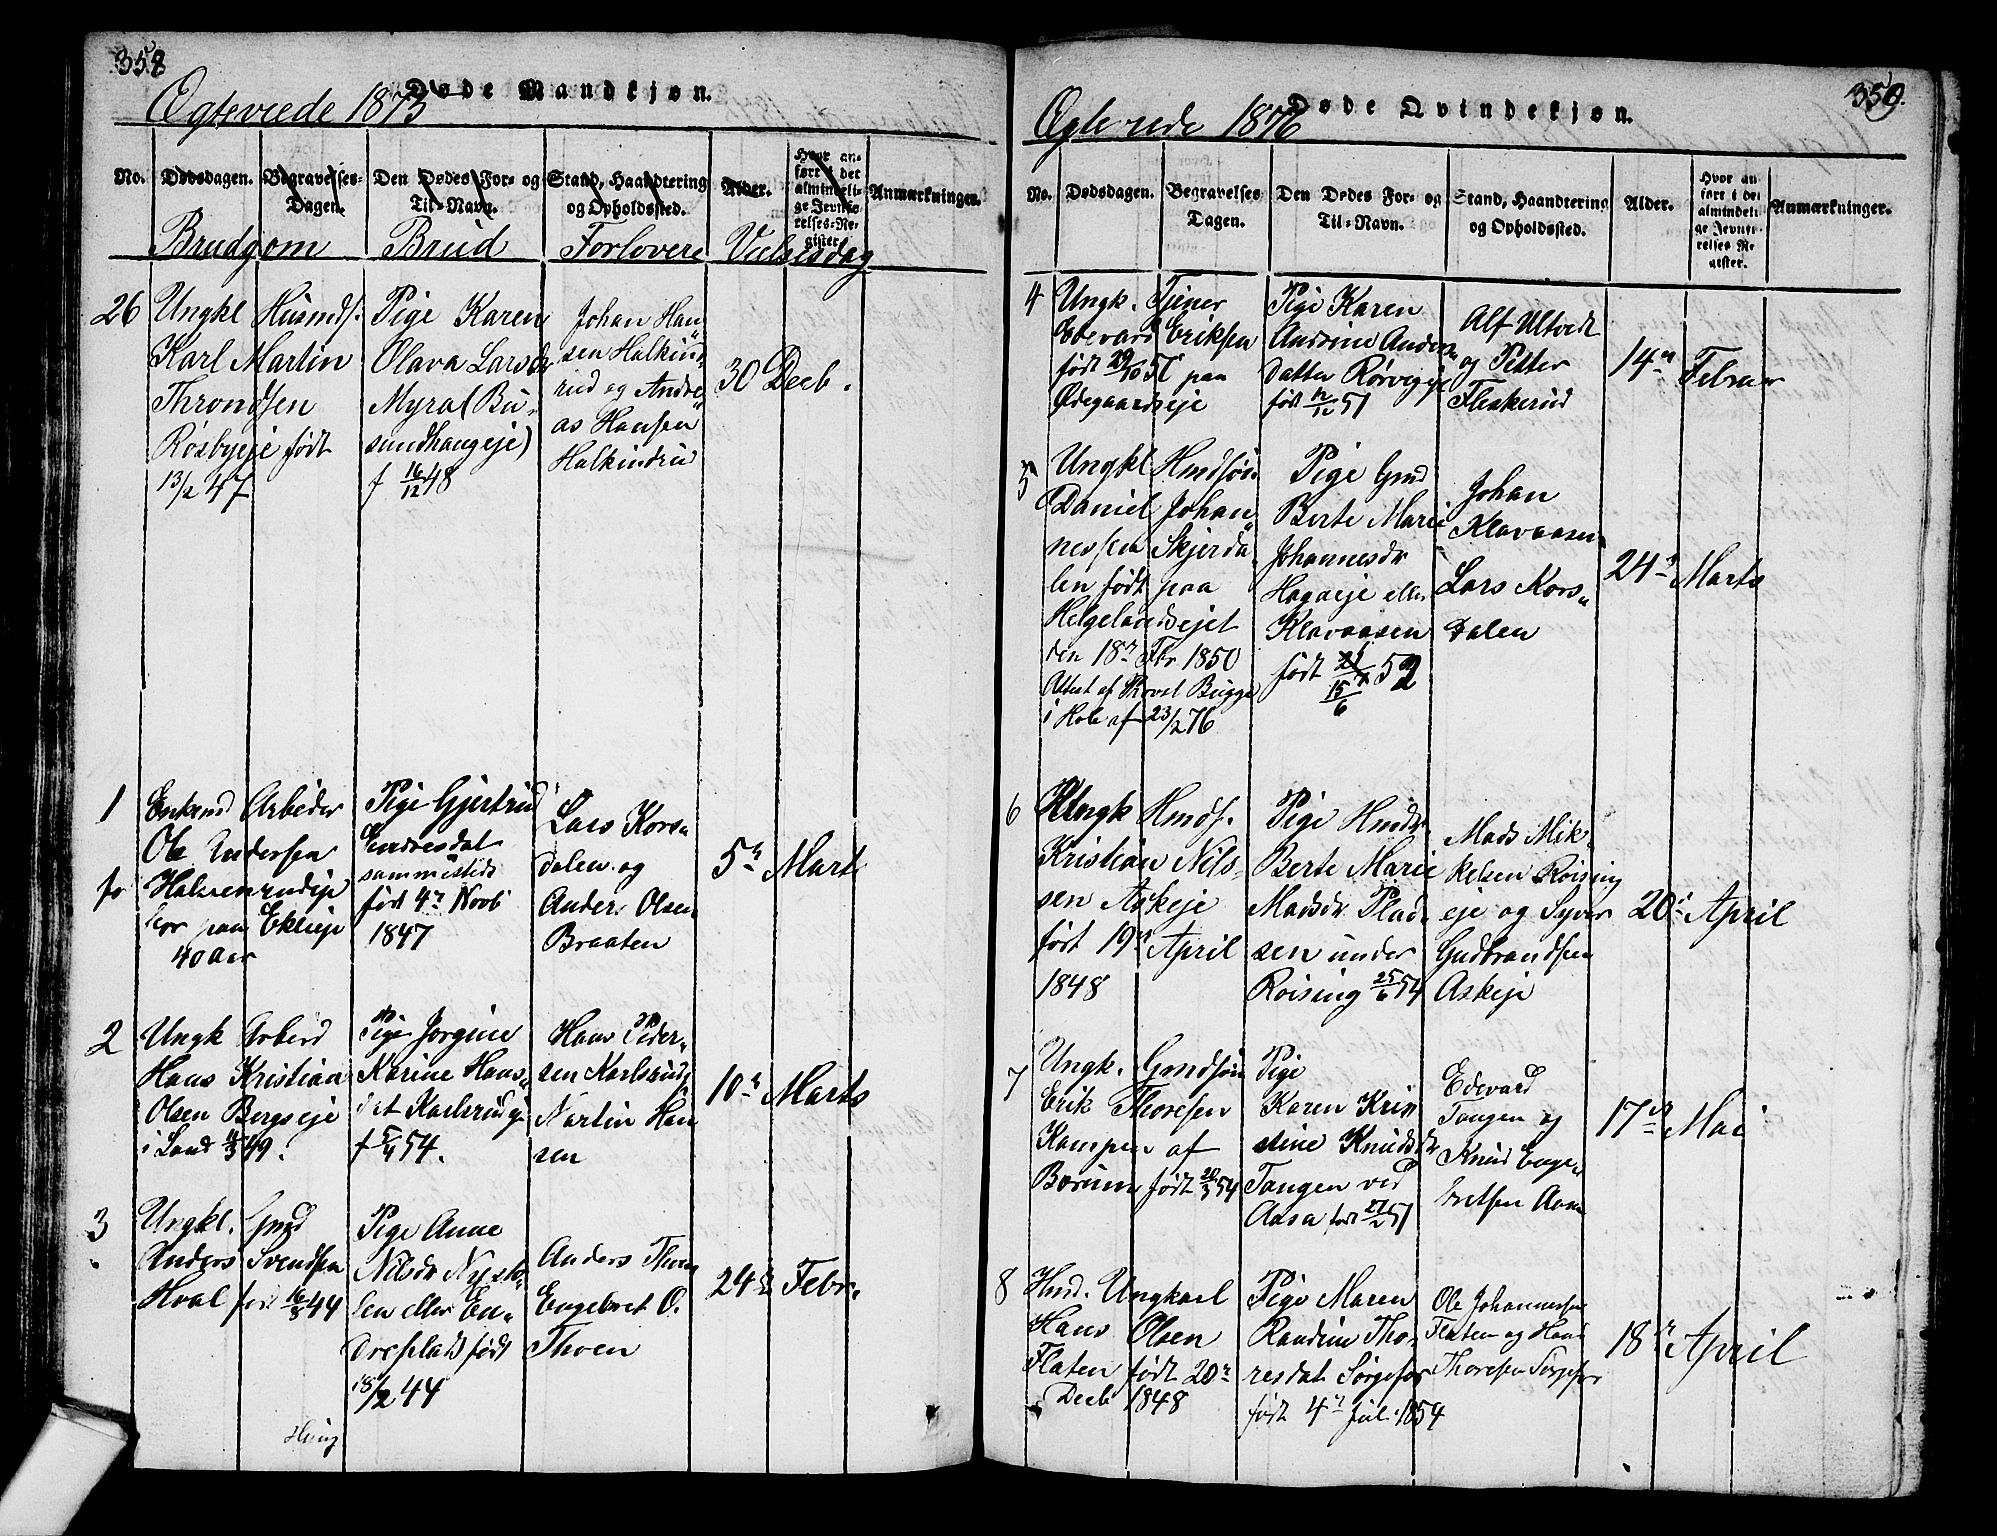 358
Døde Mandkjøn.
Ægteviede 1875
No.
Dødsdagen.
Begravelses-
Dagen.
Den Dødes For- og
Til-Navn.
Stand, Haandtering
og Opholdssted.
Alder.
Hvor an-
ført i det
almindeli-
ge Jevnfø-
relses-Re-
gister.
Anmærkninger.
Brudgom
Brud
Forlovere
Vielsesdag
26
Ungkl Husmds.
Karl Martin
Throndsen
Røsbyeje født
13/2 47
Pige Karen
Olava Larsdr
Myra (Bu-
sundhaugeje)
f 16/12 48
Johan Han"
sen Halkind"
rud og Andre"
as Hansen
Halkindru
30 Decb.
1
Enkmd Arbeder
Ole Andersen
Halvorsrudeje
før paa Ekleje
40 Aar
Pige Gjertrud
Endresdat
sammesteds
født 4de Novb
1847
Lars Kors"
dalen og
Anders Olsen
Braaten
5te Mart
2
Ungk Arbeid
Hans Kristian
Olsen Bergseje
i Land 49.
Pige Jorgine
Karine Hans"
dat Karlsrudeje
f 5/4 54.
Hans Peder"
sen Karlsrud
Martin Han
sen
10de Marts
3
Ungkl. Gmd
Anders Svendsen
Hval født 16/8 44
Pige Anne
Nilsdr Nysto"
len eller En"
dreplads født
18/2 44
Anders Thoen
Engebret O.
Thoen
24de Febr.
359.
Døde Qvindekjøn.
Ægteviede 1876
No.
Dødsdagen.
Begravelses
Dagen.
Den Dødes For- og
Til-Navn.
Stand, Haandtering
og Opholdssted.
Alder.
Hvor an
ført i det
almindeli-
ge Jevnfø-
relses Re-
gister.
Anmærkninger.
4
Ungk. Tjener
Edevard Eriksen
født 29/10 51 paa
Ødegaardseje
Pige Karen
Andrine Anders
datter Rørvigeje
født 12/12 51
Alf Ultvedt
og Petter
Fleskerud
14de Februar
5
Ungkl Hmdsøn
Daniel Johan"
nessen Skjerda"
len født paa
Helgelandsejet
den 18de Fbr 1850
Attest af Provst Bugge
i Hole af 23/2 76
Pige Gmd
Berte Marie
Johannesdr
Hagaeje eller
Klavaasen
født 15/6 52
Johan
Klavaasen
Lars Kors"
dalen
24de Marts
6
Ungk Hmdf.
Kristian Nils"
sen Askeje
født 19de April
1848
Pige Hmdr
Berte Marie
Madsdr Plad"
sen under
Roising 25/6 54
Mads Mik"
kelsen Roising
eje og Syver
Gudbrandsen
Askeje
20de April
7
Ungk. Gmdsøn
Erik Thoresen
Kampen af
Borum født 20/3 54
Pige
Karen Kris
stine Knudsdr
Tangen ved
Aasa født 27/2 51
Edevard
Tangen og
Knud Enge"
bretsen Aasa
17de Mai
8
Hmd. Ungkarl
Hans Olsen
Flaten født 20de
Decb 1848
Pige Maren
Randine Tho"
resdat Sørgefos
født 4de Juli 1854
Ole Johannessen
Flaten og Hans
Thoresen Sørgefos
18de April